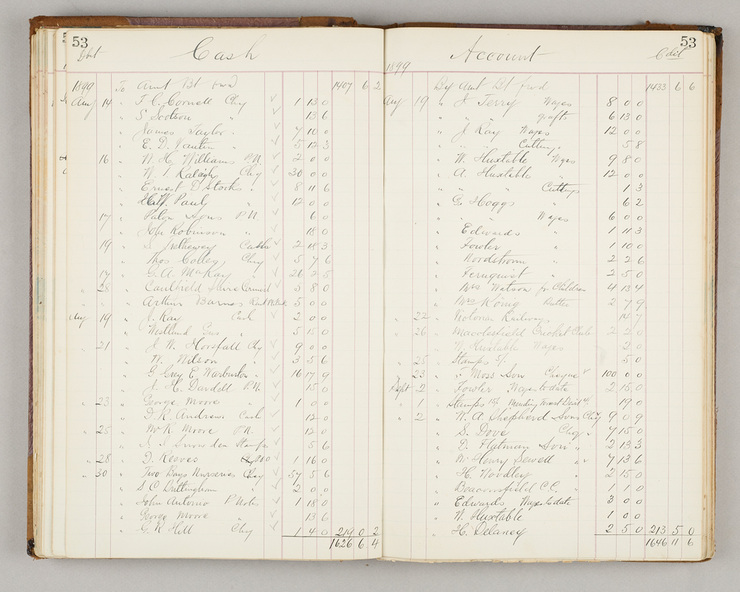 53
Cash
1899 To Amt Bt fwd 1407 6 2
Aug 14 " F. C. Cornell Chq 1 13 0
" S. Scotson " 13 6
" James Taylor " 7 10 0
" E. D. " 5 12 3
16 " N. H. Williams P.N. 2 00 0
" Chq 30 00 0
" Ernest D Stocks " 8 11 6
" Paul " 12 00 0
17 " P.N. 6 0
" John Robinson " 18 0
19 " S. 2 18 3
" Thos Colley Chq 5 7 6
17 " G. A. McKay " 26 2 5
" 28 " Caulfield Shire Council 3 8 0
" Arthur Barnes 5 00 0
Aug 19 " J. Kay Cash 2 00 0
" Westland " 5 15 0
" 21 " J. W. Horsfall Chq 9 00 0
" W. Wilson " 3 5 6
" G Grey E. Warburton " 16 17 9
" J. H. P.N. 15 0
" 23 " George Moore " 1 00 0
" D. R. Andrews Cash 12 0
" 25 " Mr R Moore P.N. 12 0
" Stamps 5 6
" 28 " D. Reeves 1 16 0
" 30 " Two Bays Nurseries Chq 57 5 6
" S C Buttingham " 2 0 0
" John Antonio P Note 1 18 0
" George Moore 13 6
" G. R. Hill Chq 1 4 0 219 0 2
1626 6 4
53
Account
1899
By Amt Bt fwd 1433 6 6
Aug 19 " J. Terry Wages 8 0 0
" " grafts 6 13 0
" J. Kay Wages 12 00 0
" " Cuttings 5 8
" W. Huxtable Wges 9 8 0
" A. Huxtable " 12 00 0
" " Cuttings 1 3
" G. Hoggs " 6 2
" " Wages 6 00 0
" Edwards " 1 11 3
" Fowler " 1 10 0
" Nordstrom " 2 2 6
" Fernquist " 2 5 0
" Mrs Watson for Children 4 13 4
" Mrs Konig Butter 2 7 9
" 22 " Victorian Railways 15 7
" 26 " Macclesfield Cricket Club 2 2 0
" W. Huxtable Wages 2 0
" 25 " Stamps 5/ 5 0
" 23 " F Moss Son Cheque 100 0 0
Sept 2 " Fowler Wages to date 2 15 0
" 1 " Stamps 19 0
" 2 " W. A. Shepherd Sons Chq 9 0 9
" S. Dove Chq 7 15 0
" E. Flatman Son " 2 13 3
" W Henry Sewell " 7 13 6
" H. " 2 15 0
" Beaconsfield C.C. " 1 1 0
" Edwards Wages to date 3 00 0
" W. Huxtable 1 0 0
" H. Delaney 2 5 0 213 5 0
1646 11 6